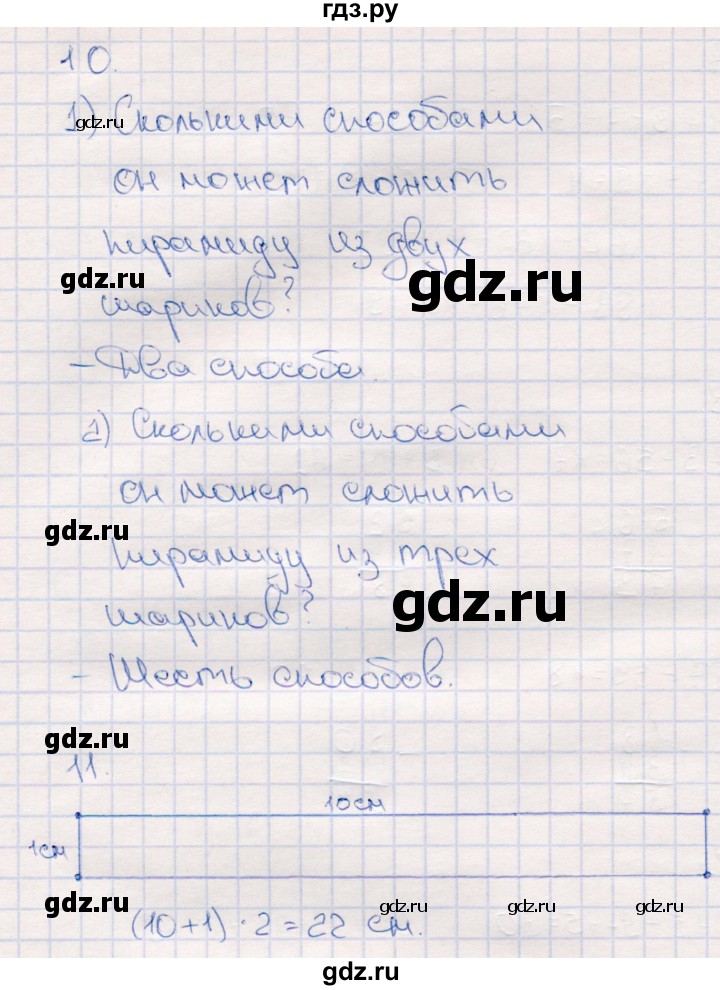 гдз.ру
10.
1) Сколькими способами
gdz.ru
он может сложить
пирамиду из двух
gdz.ru gdz.ru
шариков?
- Два способа.
2) Сколькими способами
он может сложить
gdz.ru
пирамиду из трех
gdz.ru
шариков?
- Шесть способов.
gdz.ru
11.
10 см
1 см
gdz.ru gdz.ru gdz.ru gdz.ru
(10+1)·2=22 см.
gdz.ru